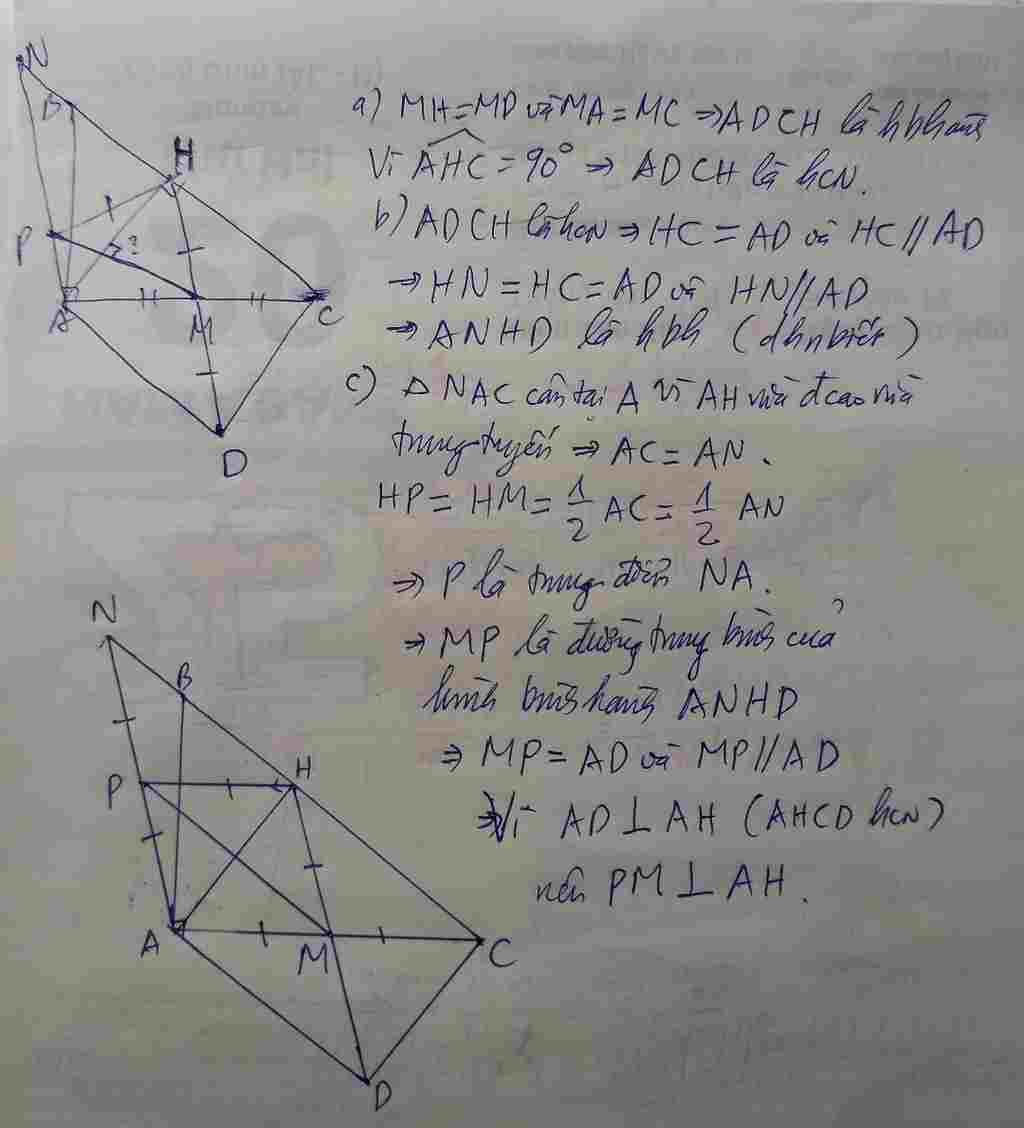 a) MH = MD và MA = MC ⇒ ADCH là hbhành
Vì AHC = 90° ⇒ ADCH là hcN.
b) ADCH là hcN ⇒ HC = AD và HC // AD
⇒ HN = HC = AD và HN // AD
⇒ ANHD là hbh (dhnbiết)
c) Δ NAC cân tại A vì AH vừa đcao vừa
trung tuyến ⇒ AC = AN.
HP = HM = 1/2 AC = 1/2 AN
⇒ P là trung điểm NA.
⇒ MP là đường trung bình của
hình bình hành ANHD
⇒ MP = AD và MP // AD
Vì AD ⊥ AH (AHCD hcN)
nên PM ⊥ AH.
N
B
H
P
?
A
M
C
D
N
B
P
H
A
M
C
D